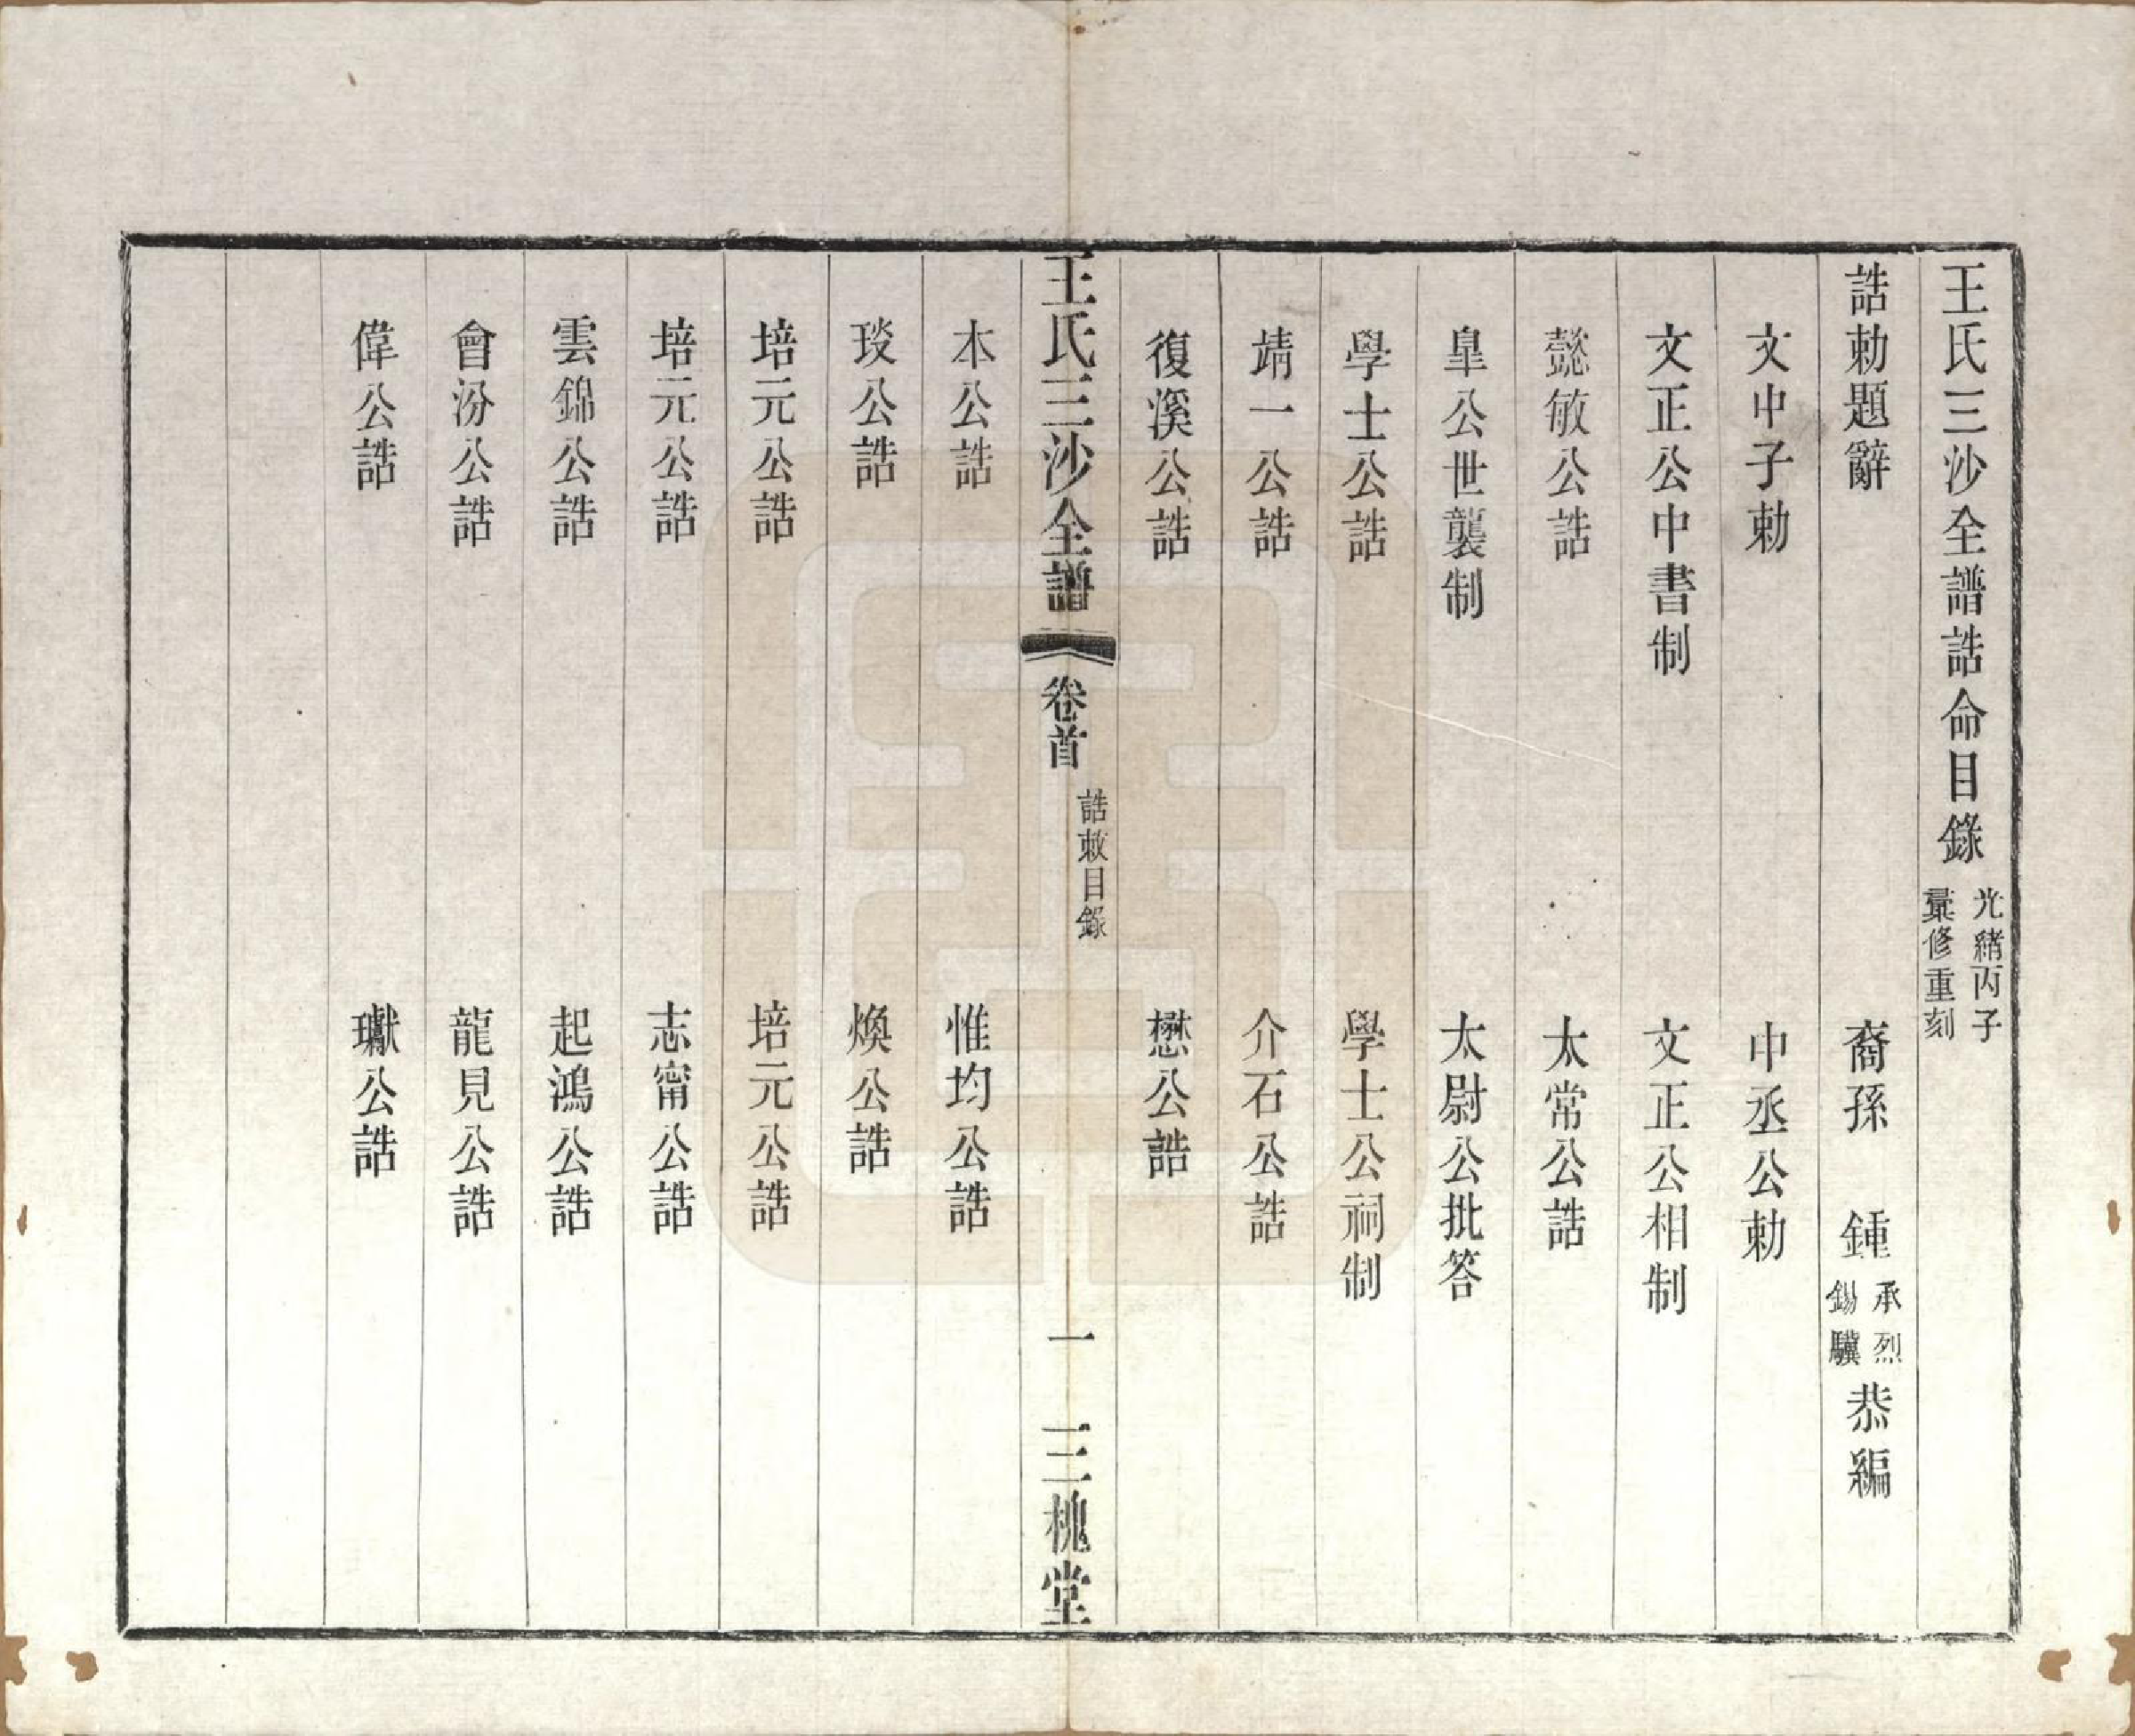 王氏三沙全譜誥命目錄 光緒丙子彙修重刻
誥勅題辭 裔孫 鍾 承烈 錫驥 恭編
文中子勅 中丞公勅
文正公中書制 文正公相制
懿敏公誥 太常公誥
皐公世襲制 太尉公批答
學士公誥 學士公祠制
靖一公誥 介石公誥
復溪公誥 懋公誥
王氏三沙全譜 卷首 誥敕目錄 一 三槐堂
本公誥 惟均公誥
琰公誥 煥公誥
培元公誥 培元公誥
培元公誥 志甯公誥
雲錦公誥 起鴻公誥
會汾公誥 龍見公誥
偉公誥 瓛公誥